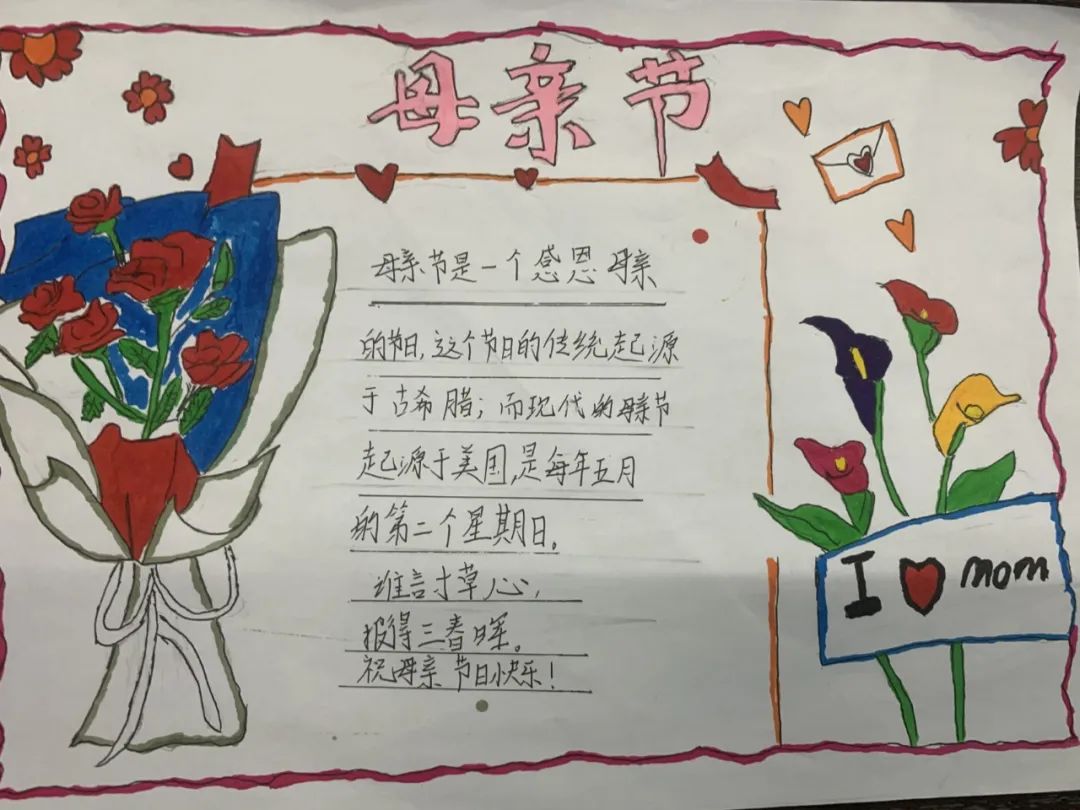 母亲节
母亲节是一个感恩母亲
的节日,这个节日的传统起源
于古希腊;而现代的母亲节
起源于美国,是每年五月
的第二个星期日。
谁言寸草心,
报得三春晖。
祝母亲节日快乐!
I ❤ mom